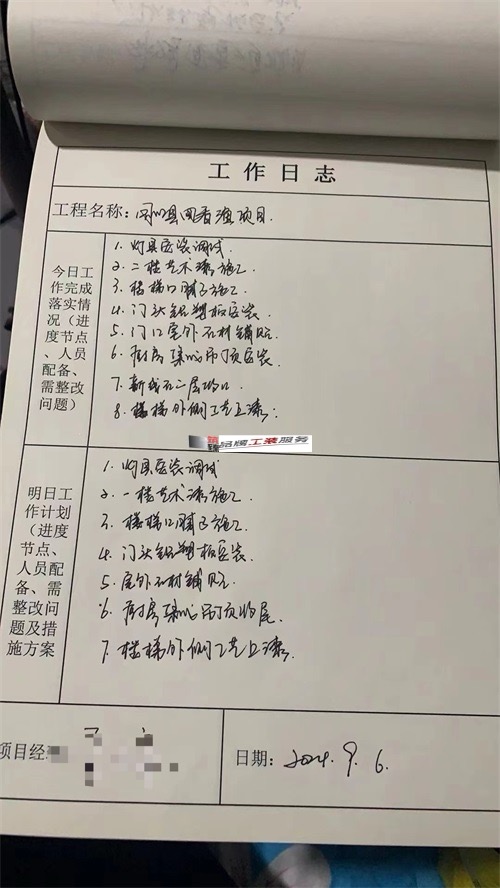 工作日志
工程名称：
项目
今日工
作完成
落实情
况（进
度节点
、人员
配备、
需整改
问题）
1. 灯具安装调试.
2. 二楼艺术漆施工.
3. 楼梯口腻子施工.
4. 门头铝塑板安装.
5. 门口室外石材铺贴.
6. 厨房 吊顶安装.
7. 二层收口
8. 楼梯外侧工艺上漆;
品牌工装服务
明日工
作计划
（进度
节点、
人员配
备、需
整改问
题及措
施方案
1. 灯具安装调试
2. 一楼艺术漆施工.
3. 楼梯口腻子施工.
4. 门头铝塑板安装.
5. 室外石材铺贴.
6. 厨房 吊顶收尾.
7. 楼梯外侧工艺上漆.
项目经
日期：2024.9.6.